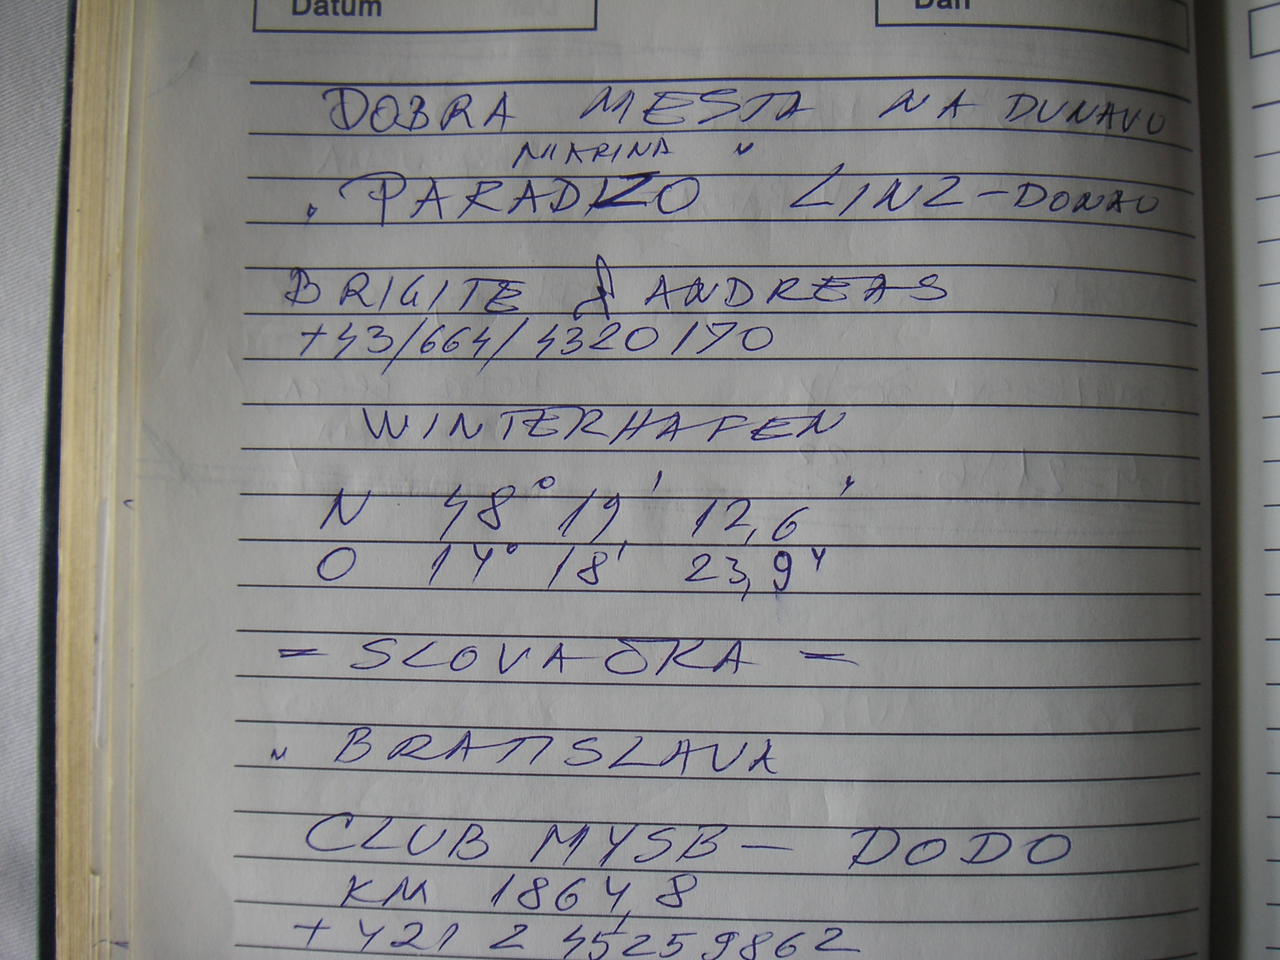 Datum
Dan
DOBRA MESTA NA DUNAVU
MARINA "
" PARADIZO LINZ-DONAU
BRIGITE & ANDREAS
+43/664/4320170
WINTERHAFEN
N 48° 19' 12,6"
O 14° 18' 23,9"
= SLOVAČKA =
" BRATISLAVA
CLUB MYSB - DODO
KM 1864,8
+421 2 45259862